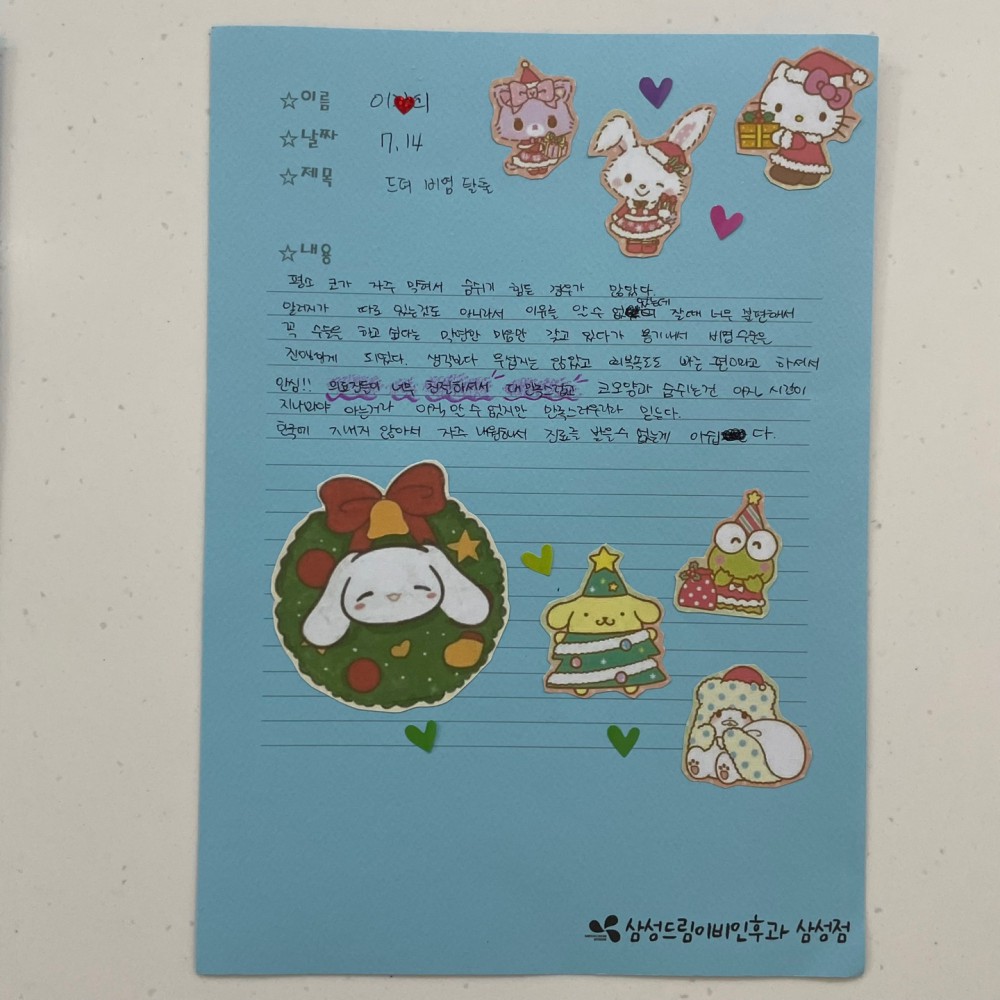 ☆이름 이 희
☆날짜 7.14
☆제목 드뎌 비염 탈출
☆내용
평소 코가 자주 막혀서 숨쉬기 힘든 경우가 많았다.
알러지가 따로 있는것도 아니라서 이유를 알 수 없었는데 잘때 너무 불편해서
꼭 수술을 하고 싶다는 막연한 마음만 갖고 있다가 용기내서 비염수술을
진행하게 되었다. 생각보다 무섭지는 않았고 회복속도도 빠른 편이라고 하셔서
안심!! 의료진들이 너무 친절하셔서 대만족스럽고 코모양과 숨쉬는건 아직 시간이
지나봐야 아는거라 아직 알 수 없지만 만족스러우리라 믿는다.
한국에 지내지 않아서 자주 내원해서 진료를 받을수 없는게 아쉽 다.
삼성드림이비인후과 삼성점